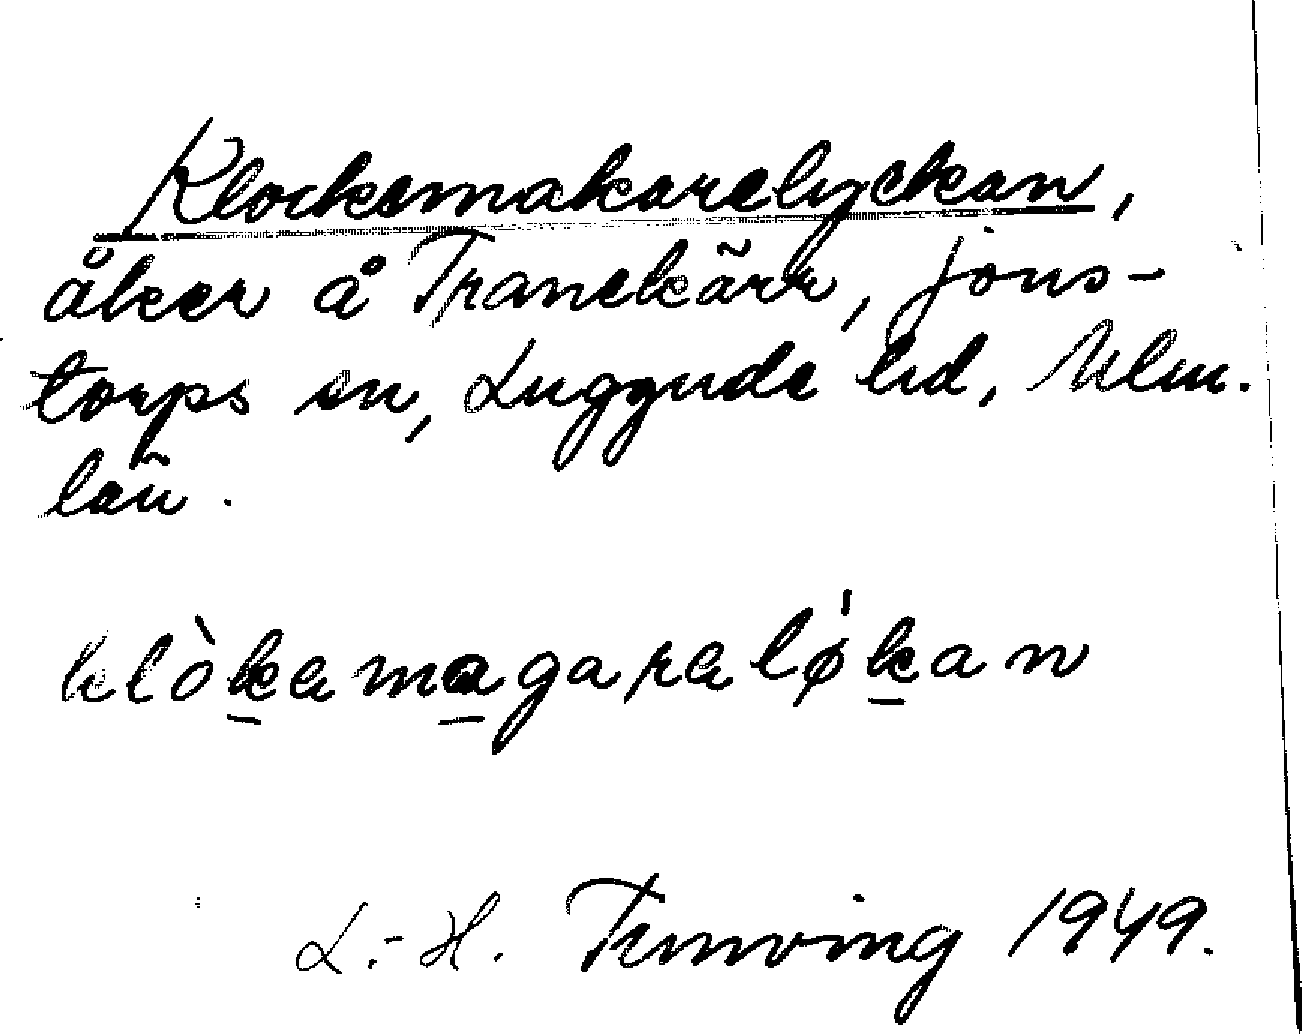 Klockemakarelyckan,
åker å Tranekärr, Jons-
torps sn, Luggude hd, Mlm.
län.
klòkamagaraløkan
L.-H. 1949.